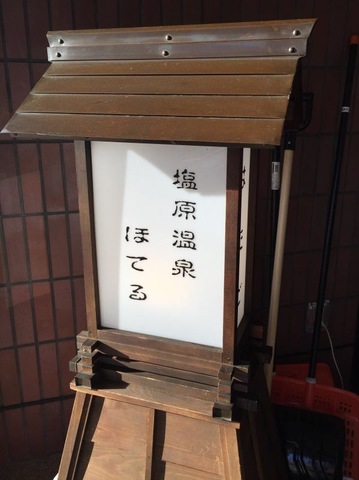 塩原温泉
ほてる